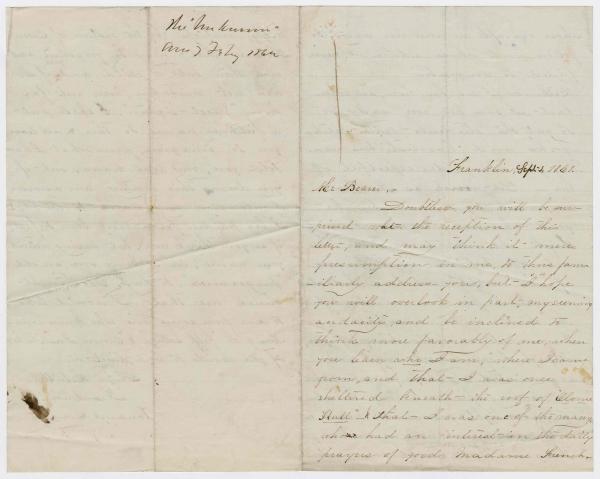 The "Unknown"
7 Feby 1862
Franklin, Sept 1861.
Mr
Doubtless you will be sur-
prised at the reception of this
letter, and may think it mere
presumption in me, to thus fami
iliarly address you, but I hope
you will overlook in part, my seeming
audacity, and be inclined to
think more favorably of me, when
you learn who I am, where I came
from, and that I was once
sheltered beneath the roof of "Stone
Hall" & that I was one of the many
who had an interest in the daily
prayers of good Madame French